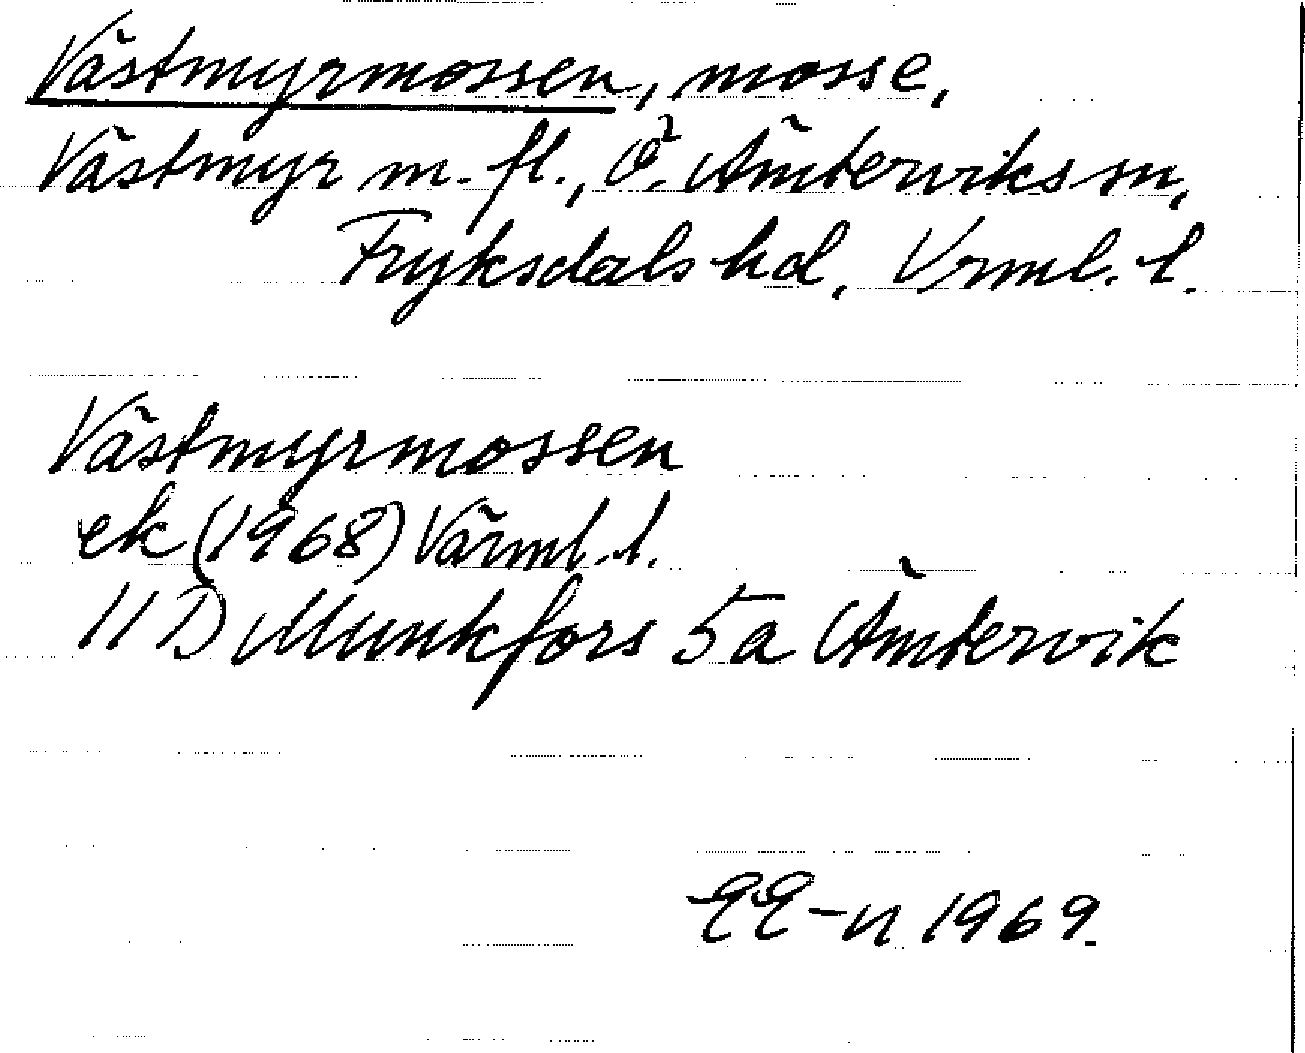 Västmyrmossen, mosse,
Västmyr m. fl., Ö. Ämterviks sn,
Fryksdals hd, Vrml. l.
Västmyrmossen
ek (1968) Värml. l.
11 D Munkfors 5 a Ämtervik
EE-n 1969.